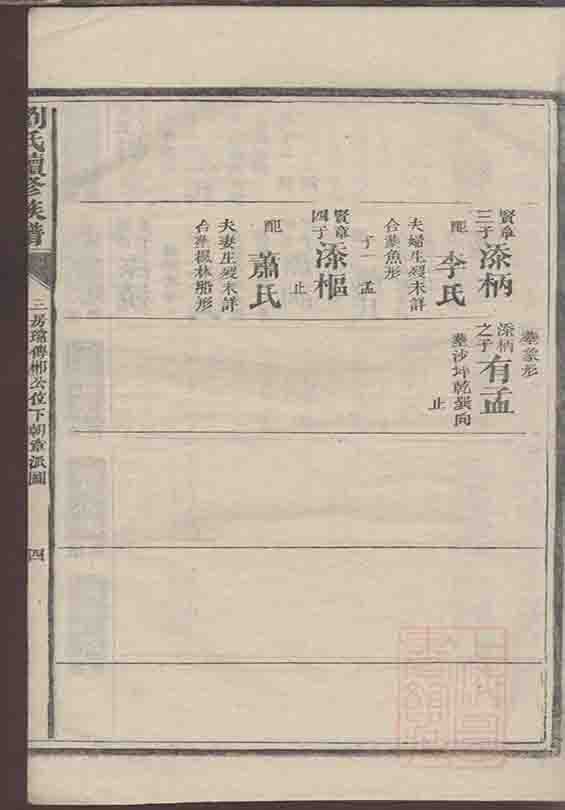 賢章三子添柄
配李氏
夫婦生歿未詳
合葬魚形
子一 孟
賢章四子添樞
止
配蕭氏
夫妻生歿未詳
合葬楓林船形
葬象形
添柄之子有孟
葬沙坪乾巽向
止
劉氏續修族譜
三房瑺傳郴公位下朝章派圖
四